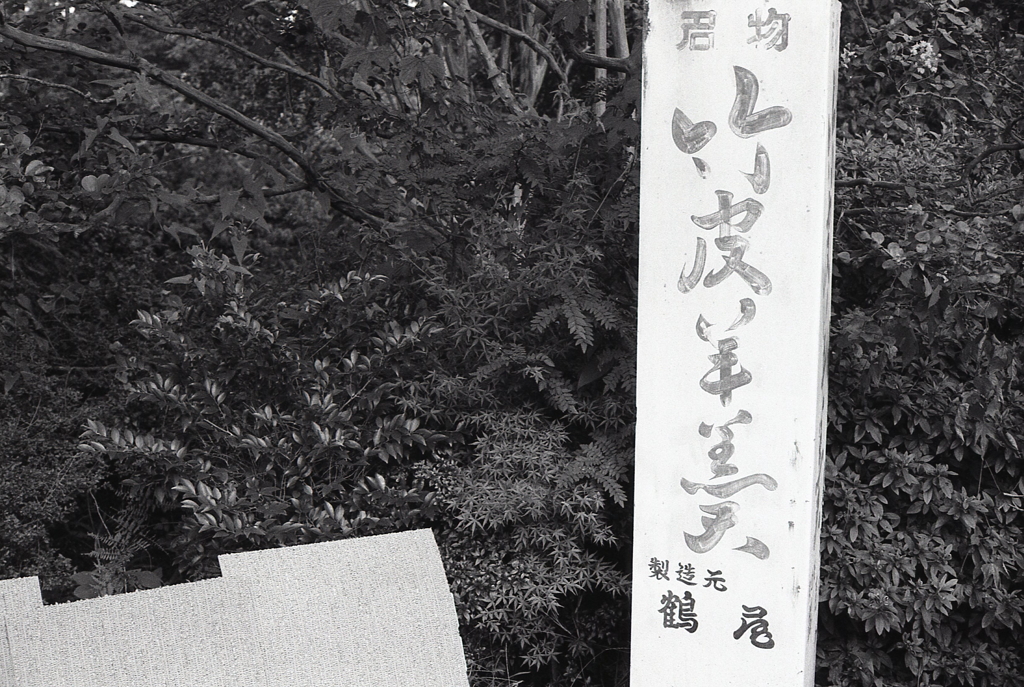 名物
竹皮羊羹
製造元
鶴屋